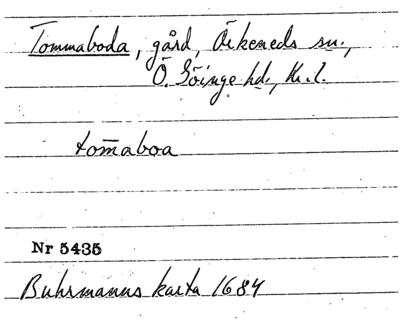 Tommaboda, gård, Örkeneds sn.,
Ö. Göinge hd., Kr. l.
tom̄aboa
Nr 5435
Buhrmanns karta 1684